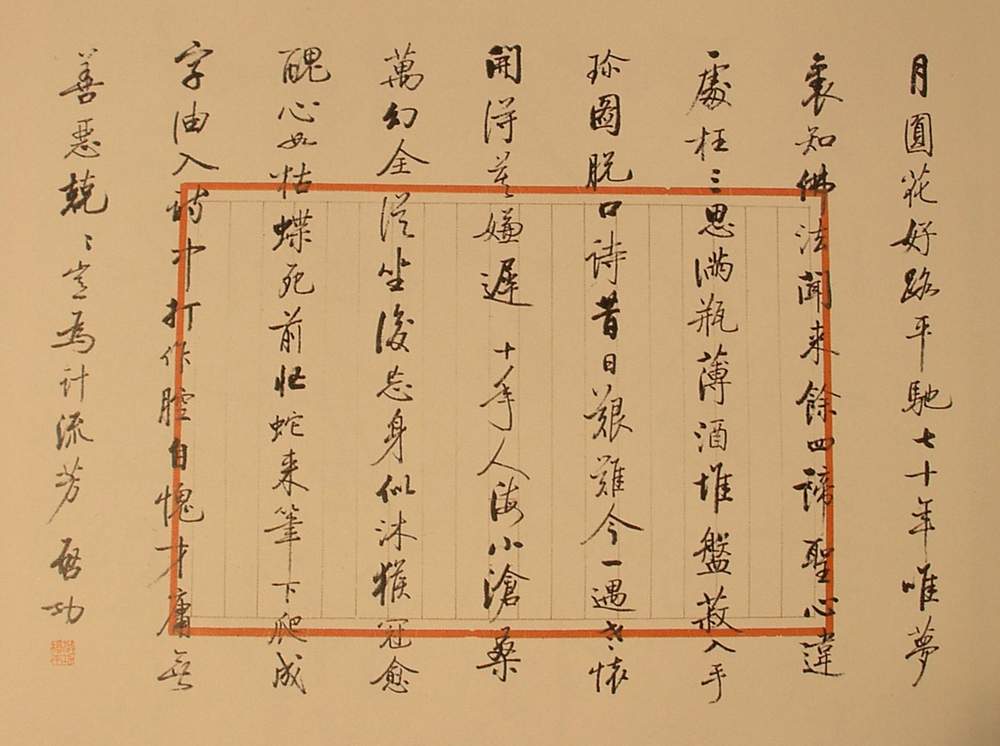 月圓花好路平馳七十年唯夢
裏知佛法聞来餘四諦聖心違
一處枉〻思滿瓶薄酒堆盤菽入手
珍圖脱口詩昔日艱難今一遇老懷
開得莫嫌遲 十年人海小滄桑
萬幻全從坐後忘身似沐猴冠愈
醜心如枯蝶死前忙蛇来筆下爬成
字油入詩中打作腔自愧才庸無
善惡兢〻豈為計流芳 啓功